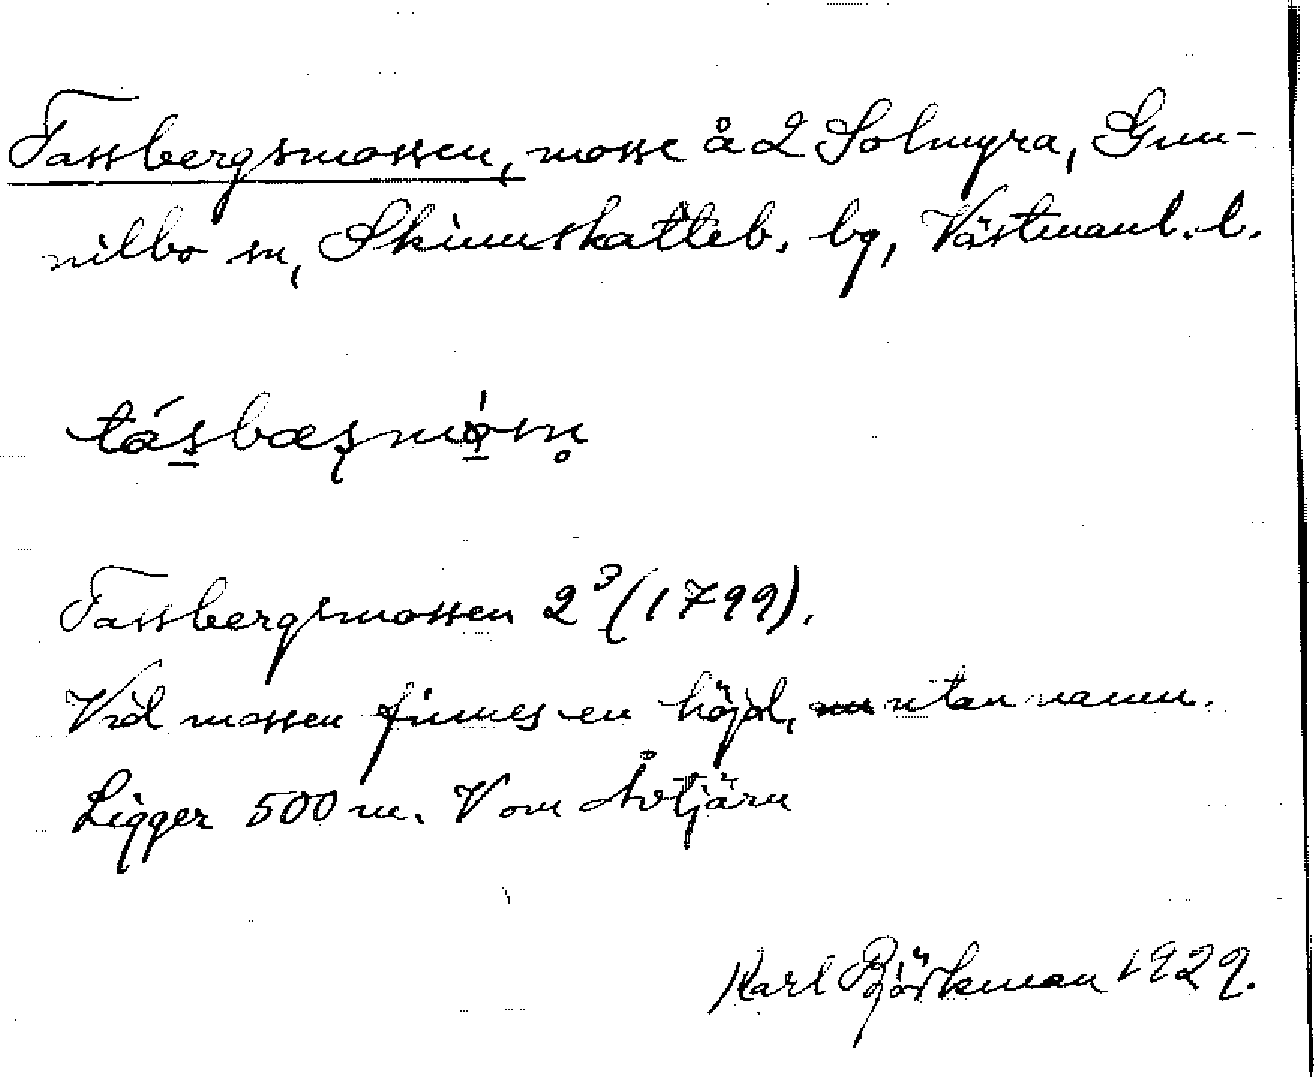 Tassbergsmossen, mosse å 2 Solmyra, Gun-
nilbo sn, Skinnskatteb. bg, Västmanl. l.
tásbæsmósn̥
Tassbergsmossen 2³ (1799).
Vid mossen finnes en höjd, utan namn.
Ligger 500 m. V om Åvtjärn
Karl Björkman 1929.